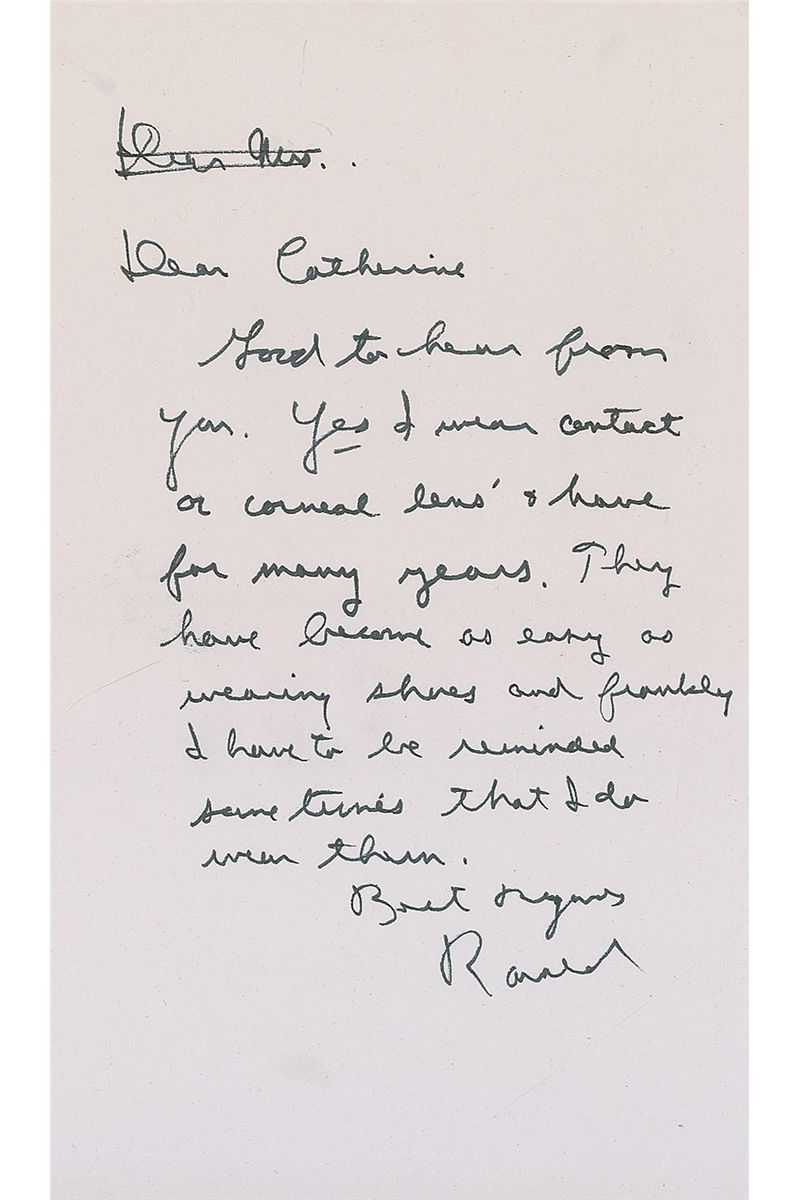 Dear Mrs. .
Dear Catherine
Good to hear from
you. Yes I wear contact
or corneal lens' & have
for many years. They
have become as easy as
wearing shoes and frankly
I have to be reminded
sometimes that I do
wear them.
Best Regards
Ronald